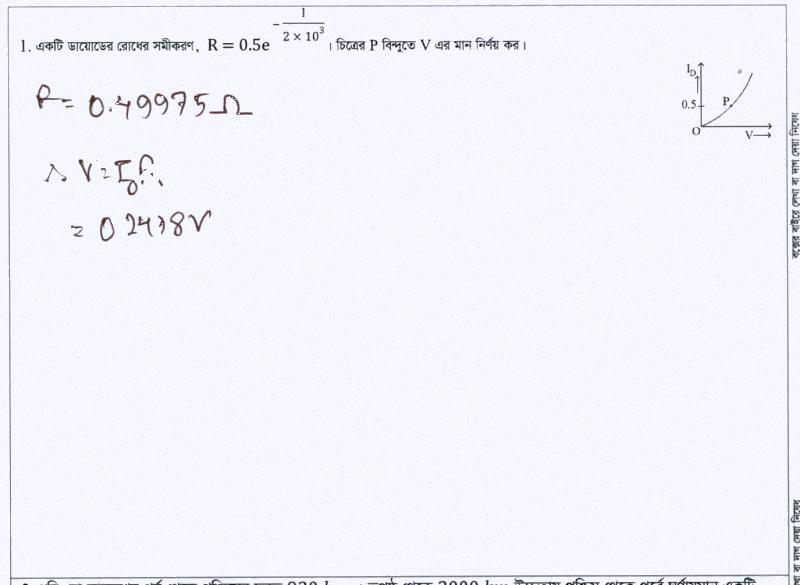 1. একটি ডায়োডের রোধের সমীকরণ, R = 0.5e^(-I/(2 × 10³)) । চিত্রের P বিন্দুতে V এর মান নির্ণয় কর।
I_D
P
0.5
O
V
R = 0.49975 Ω
∴ V = I_D R
= 0.2498 V
বক্সের বাইরে লেখা বা দাগ দেয়া নিষেধ
বা দাগ দেয়া নিষেধ